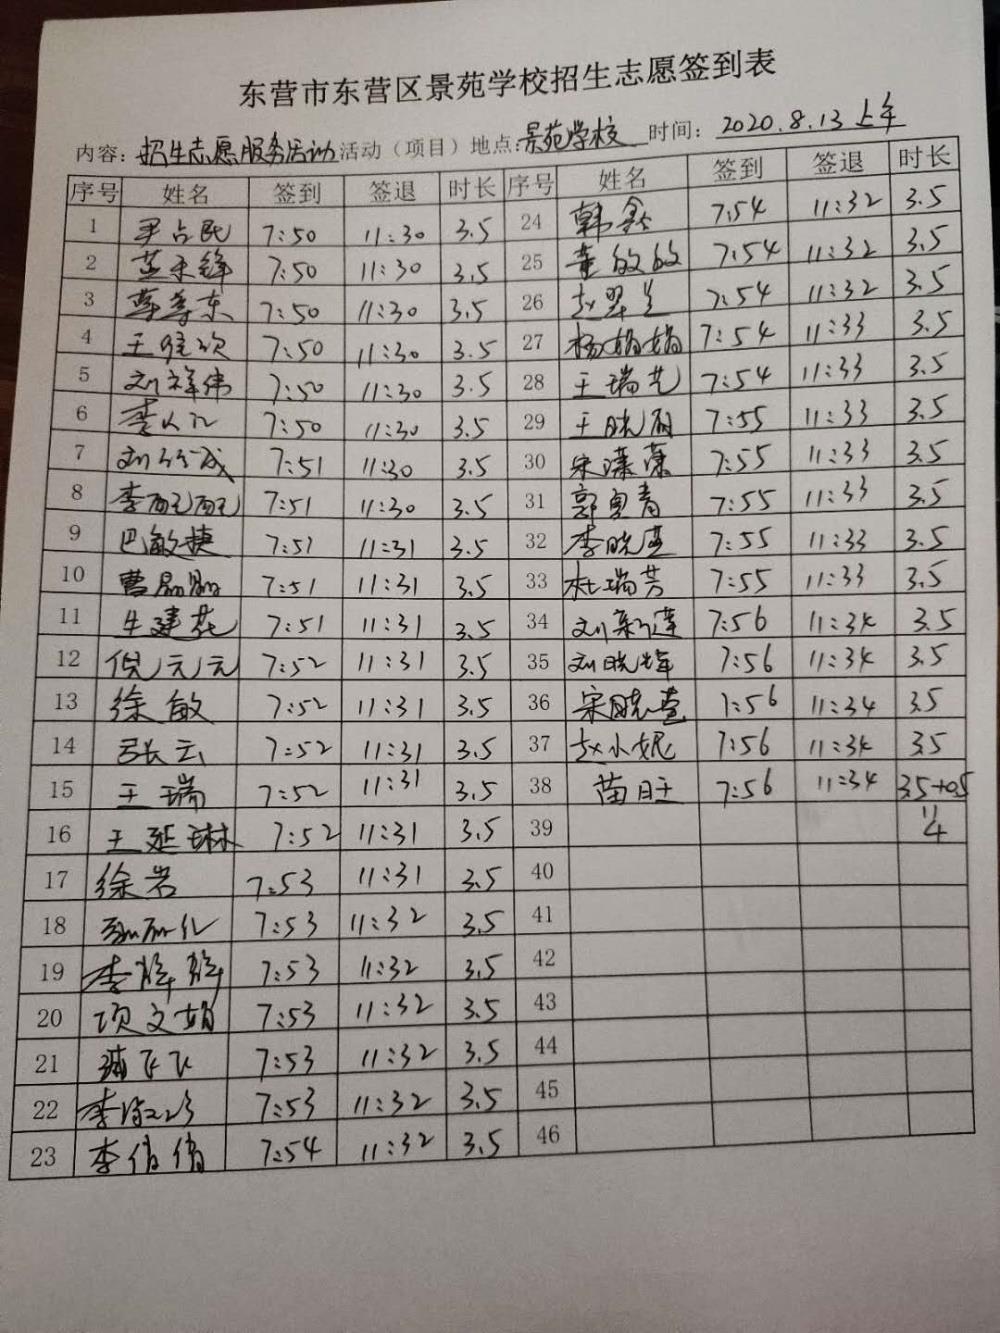 东营市东营区景苑学校招生志愿签到表
内容：招生志愿服务活动活动（项目）地点：景苑学校 时间：2020.8.13上午
序号 姓名 签到 签退 时长 序号 姓名 签到 签退 时长
1 尹占民 7:50 11:30 3.5 24 韩鑫 7:54 11:32 3.5
2 7:50 11:30 3.5 25 董敏敏 7:54 11:32 3.5
3 7:50 11:30 3.5 26 赵翠兰 7:54 11:32 3.5
4 7:50 11:30 3.5 27 杨娟娟 7:54 11:33 3.5
5 刘祥伟 7:50 11:30 3.5 28 王瑞艺 7:54 11:33 3.5
6 7:50 11:30 3.5 29 王晓丽 7:55 11:33 3.5
7 7:51 11:30 3.5 30 宋潇潇 7:55 11:33 3.5
8 李丽丽 7:51 11:30 3.5 31 7:55 11:33 3.5
9 巴敏捷 7:51 11:31 3.5 32 7:55 11:33 3.5
10 曹晶晶 7:51 11:31 3.5 33 杜瑞芳 7:55 11:33 3.5
11 牛建花 7:51 11:31 3.5 34 刘新莲 7:56 11:34 3.5
12 倪元元 7:52 11:31 3.5 35 刘晓辉 7:56 11:34 3.5
13 徐敏 7:52 11:31 3.5 36 宋晓萱 7:56 11:34 3.5
14 张云 7:52 11:31 3.5 37 赵小妮 7:56 11:34 3.5
15 王瑞 7:52 11:31 3.5 38 苗旺 7:56 11:34 3.5+0.5
16 王延琳 7:52 11:31 3.5 39 4
17 徐岩 7:53 11:31 3.5 40
18 7:53 11:32 3.5 41
19 7:53 11:32 3.5 42
20 项文娟 7:53 11:32 3.5 43
21 7:53 11:32 3.5 44
22 7:53 11:32 3.5 45
23 李俏俏 7:54 11:32 3.5 46